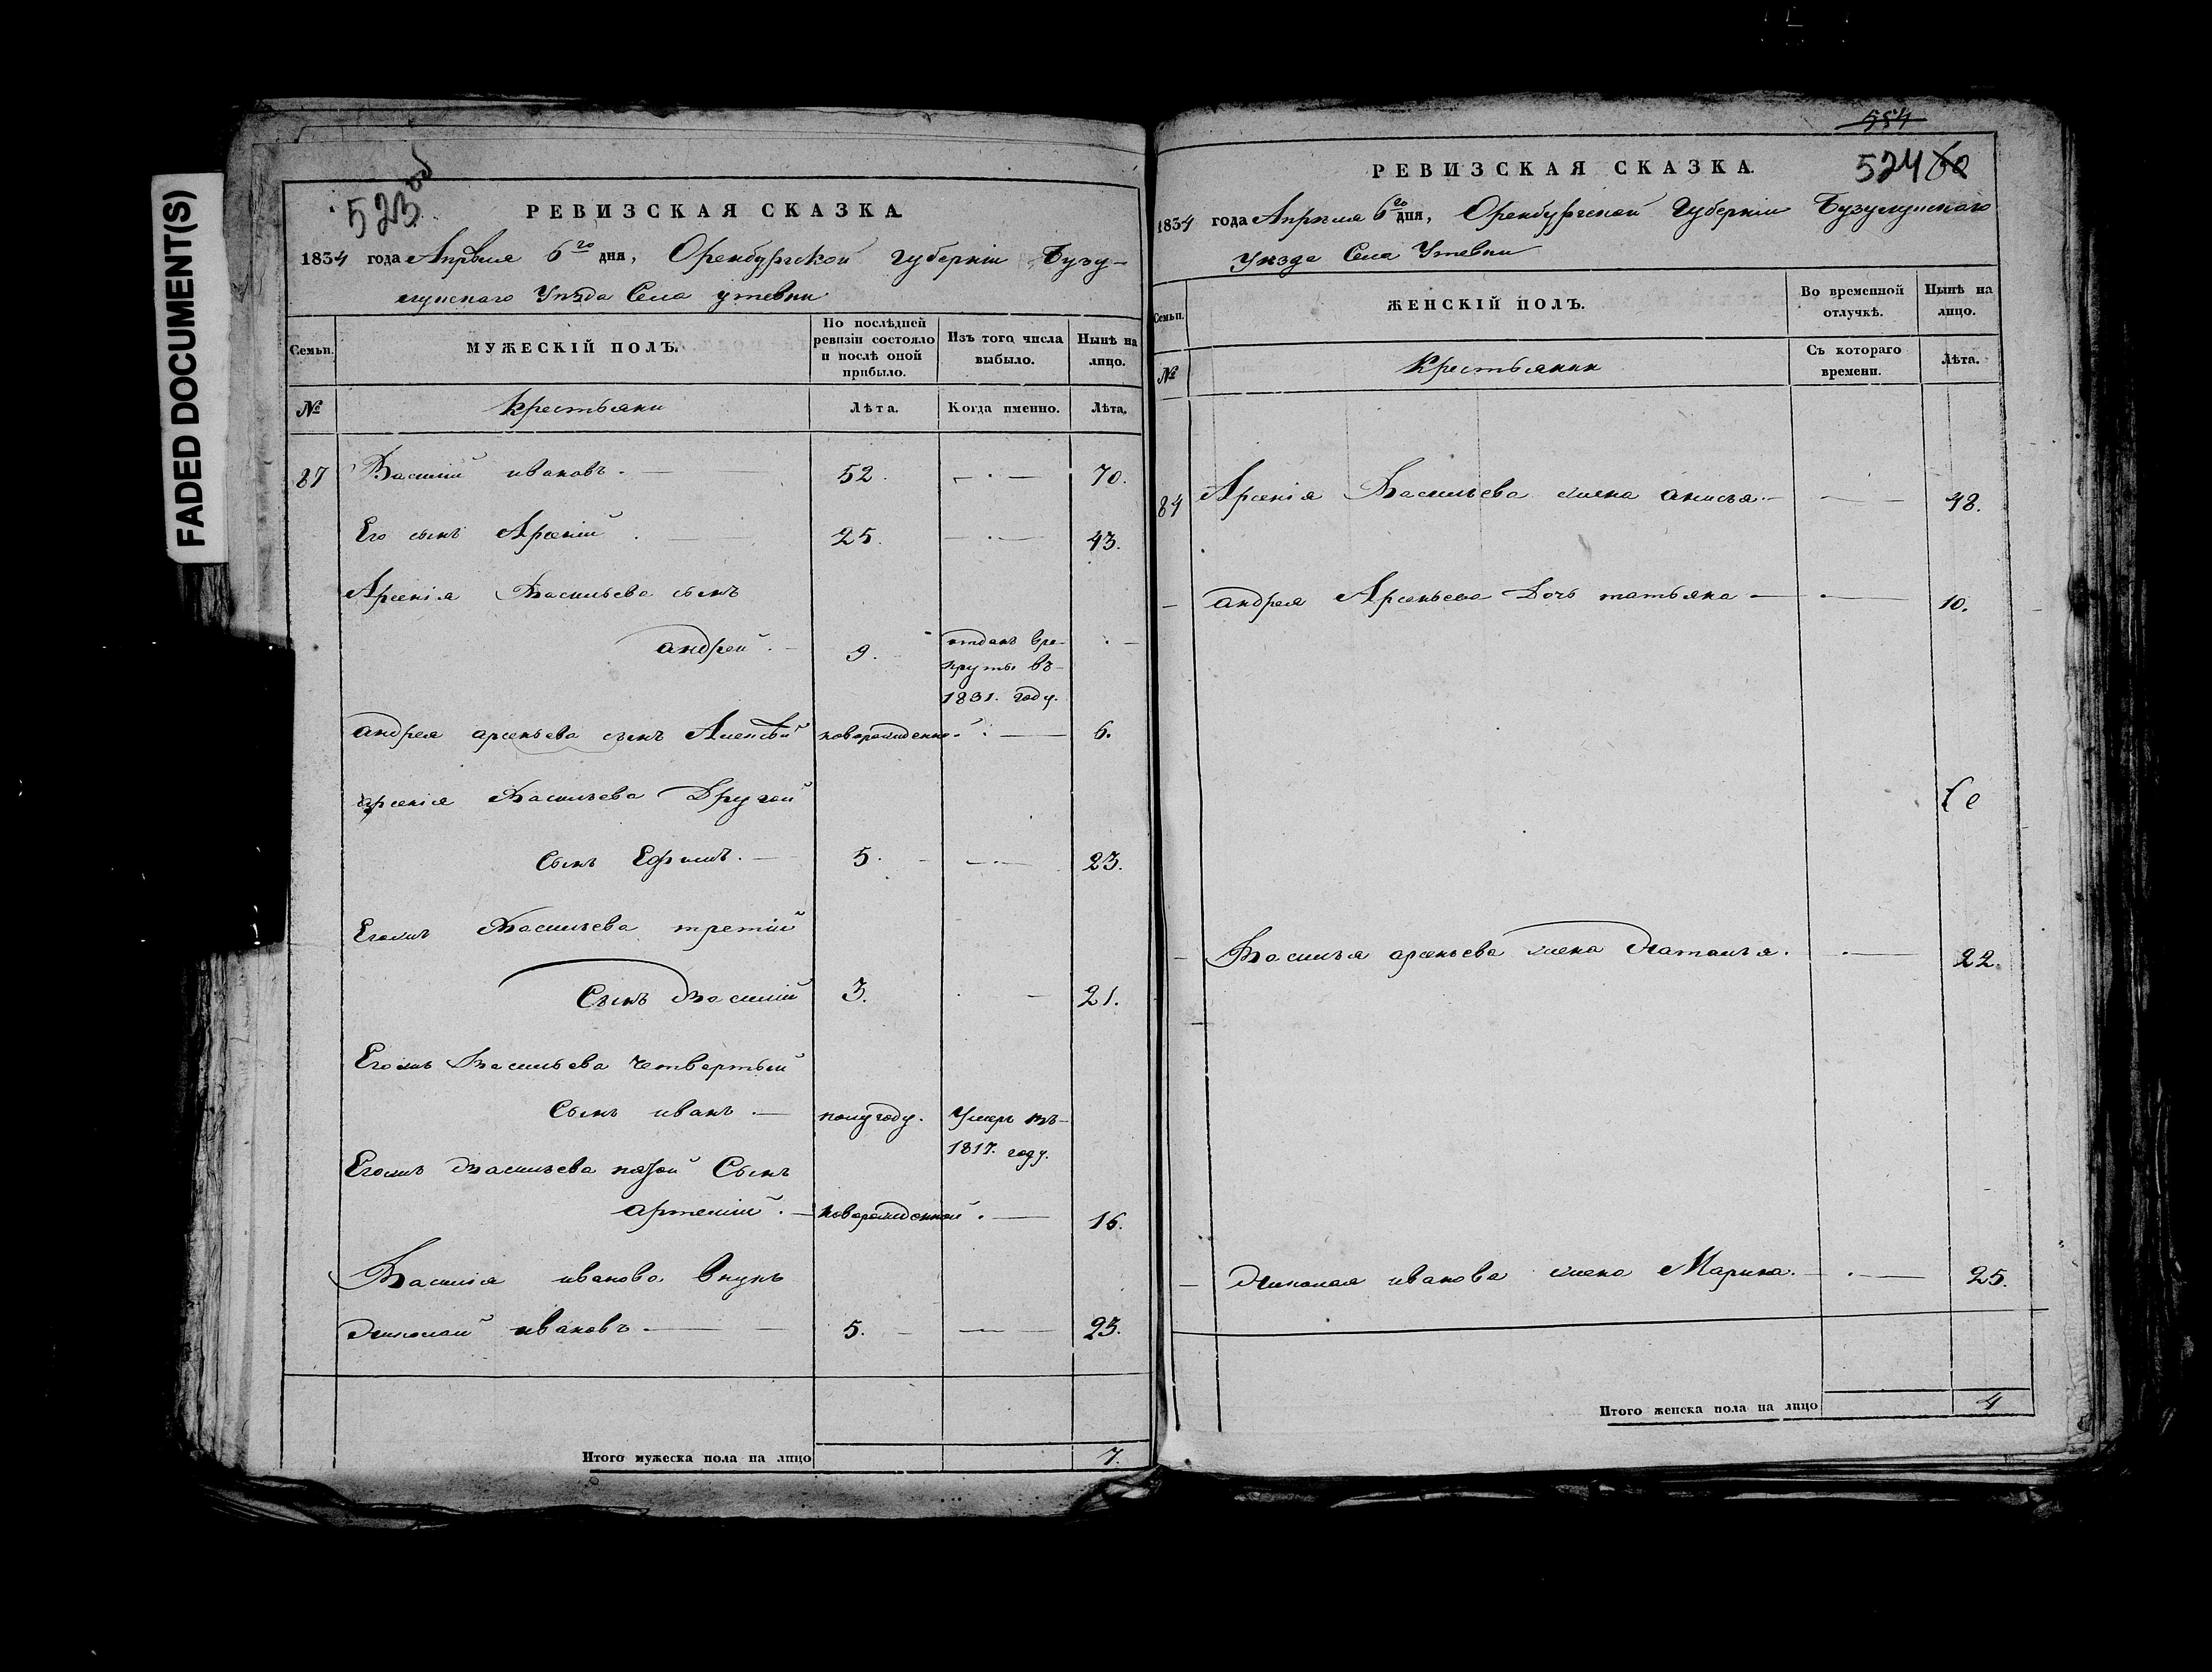 FADED DOCUMENT(S)
523 об
РЕВИЗСКАЯ СКАЗКА.
1834 года Апреля 6го дня, Оренбургской губерніи Бузу-
лунскаго Уезда Села утевки
Семьи.
МУЖЕСКІЙ ПОЛЪ.
По послѣдней ревизіи состояло и послѣ оной прибыло.
Изъ того числа выбыло.
Нынѣ на лицо.
№
крестьяни
Лѣта.
Когда именно.
Лѣта.
87 Василій ивановъ. — 52. — 70.
Его сынъ Арсеній. — 25. — 43.
Арсенія Васильева сынъ
андрей. — 9. отданъ вре-
круты въ-
1831. году.
андрея арсеньева сынъ Алексѣй новорожденной — 6.
арсенія Васильева Другой
Сынъ Ефимъ. — 5. — 23.
Егожъ Васильева третій
Сынъ Василій 3. — 21.
Егожъ Васильева Четвертый
Сынъ иванъ. — полугоду. Умеръ въ-
1817. году.
Егожъ Васильева пятой Сынъ
артемій. — новорожденной. — 16.
Василія иванова внукъ
Николай ивановъ. — 5. — 23.
Итого мужеска пола на лицо 7.
554
524
РЕВИЗСКАЯ СКАЗКА.
1834 года Апреля 6го дня, Оренбургской Губерніи Бузулунскаго
Уезда Села Утевки
Семьи.
ЖЕНСКІЙ ПОЛЪ.
Во временной отлучкѣ.
Нынѣ на лицо.
№
Крестьянки
Съ котораго времени.
Лѣта.
84 Арсенія Васильева жена анисья. — 48.
— андрея Арсеньева Дочь татьяна — 10.
— Василья арсеньева жена Наталья. — 22.
— Николая иванова жена Марина. — 25.
Итого женска пола на лицо 4